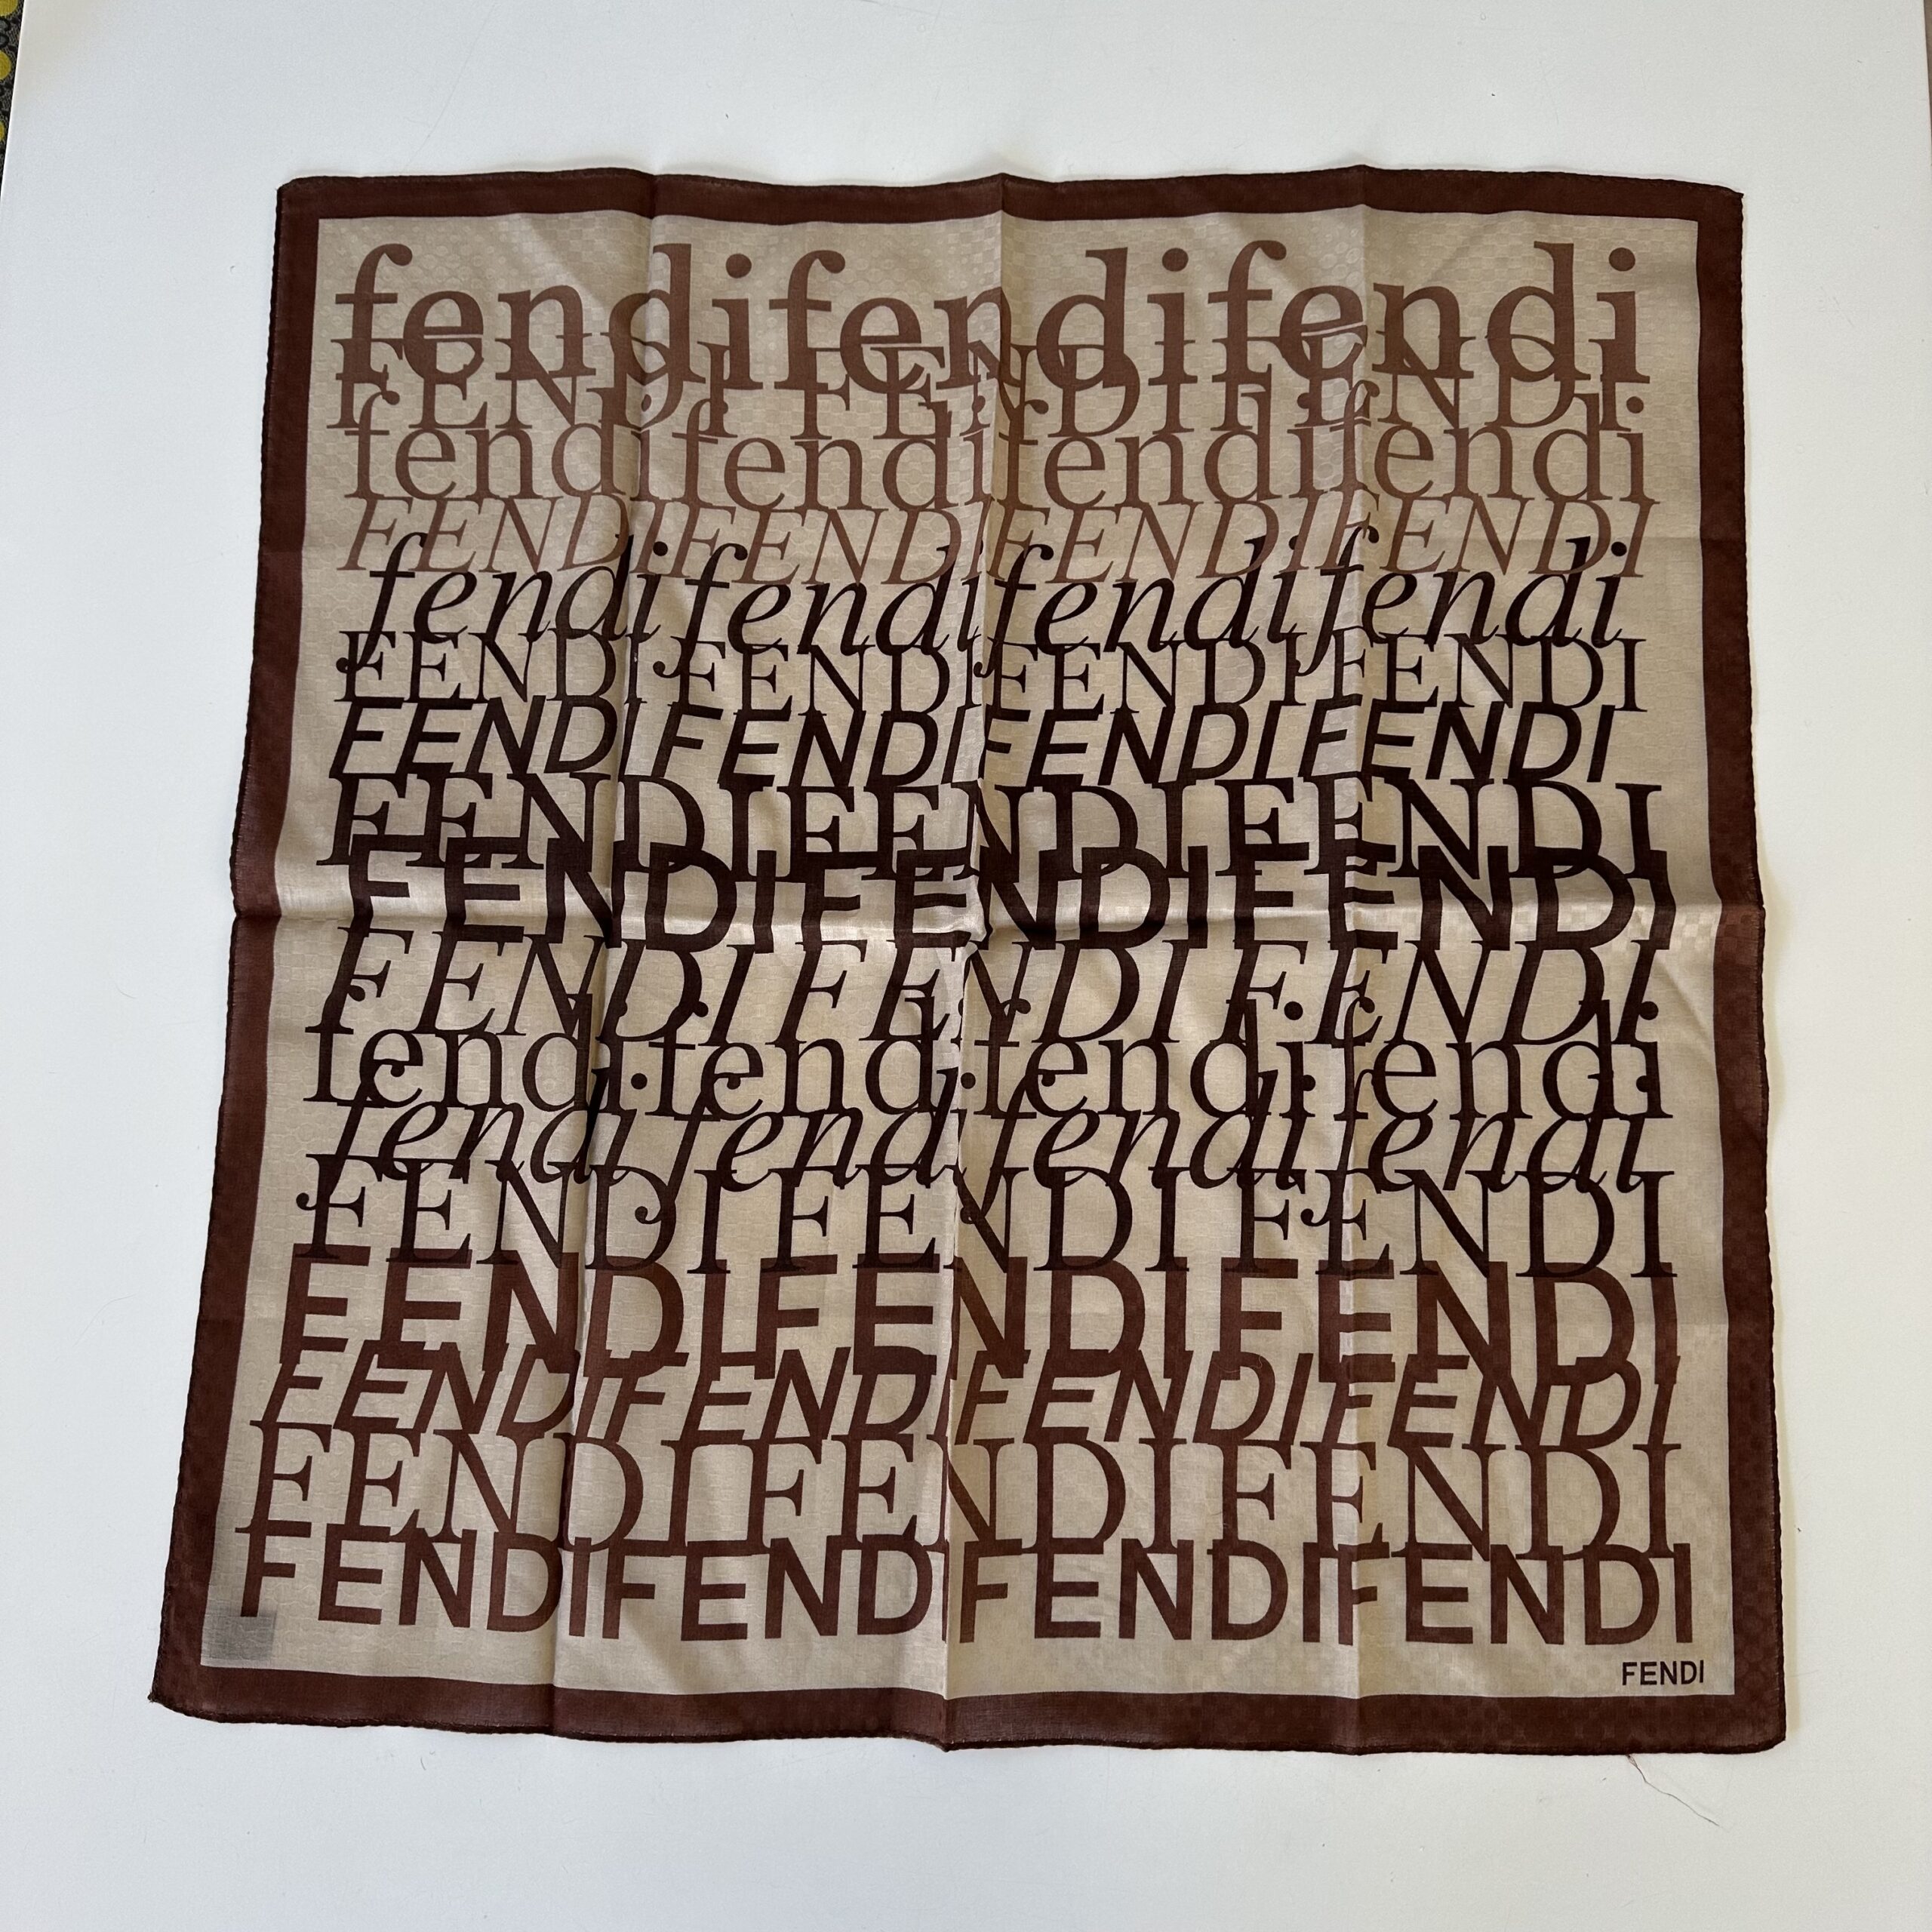 fendifendifendi
FENDIFENDIFENDI
fendifendifendifendi
FENDIFENDIFENDIFENDI
fendifendifendifendi
FENDIFENDIFENDIFENDI
FENDIFENDIFENDIFENDI
FENDIFENDIFENDI
FENDIFENDIFENDI
FENDIFENDIFENDI
fendifendifendifendi
fendifendifendifendi
FENDIFENDIFENDI
FENDIFENDIFENDI
FENDIFENDIFENDIFENDI
FENDIFENDIFENDI
FENDIFENDIFENDIFENDI
FENDI